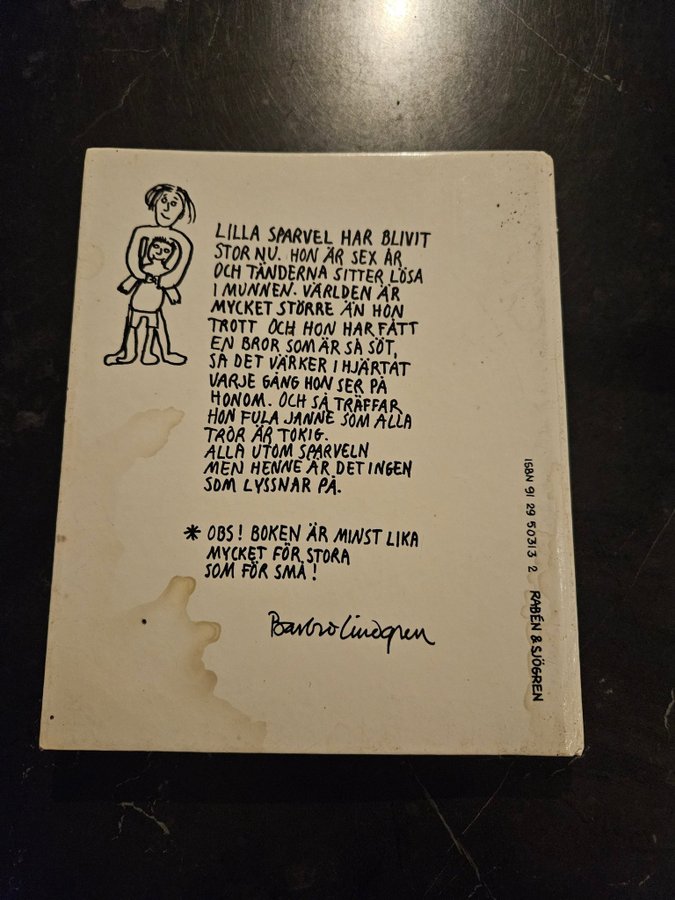 LILLA SPARVEL HAR BLIVIT
STOR NU. HON ÄR SEX ÅR
OCH TÄNDERNA SITTER LÖSA
I MUNNEN. VÄRLDEN ÄR
MYCKET STÖRRE ÄN HON
TROTT OCH HON HAR FÅTT
EN BROR SOM ÄR SÅ SÖT,
SÅ DET VÄRKER I HJÄRTAT
VARJE GÅNG HON SER PÅ
HONOM. OCH SÅ TRÄFFAR
HON FULA JANNE SOM ALLA
TROR ÄR TOKIG.
ALLA UTOM SPARVELN
MEN HENNE ÄR DET INGEN
SOM LYSSNAR PÅ.
* OBS! BOKEN ÄR MINST LIKA
MYCKET FÖR STORA
SOM FÖR SMÅ!
Barbro Lindgren
ISBN 91 29 50313 2 RABÉN & SJÖGREN